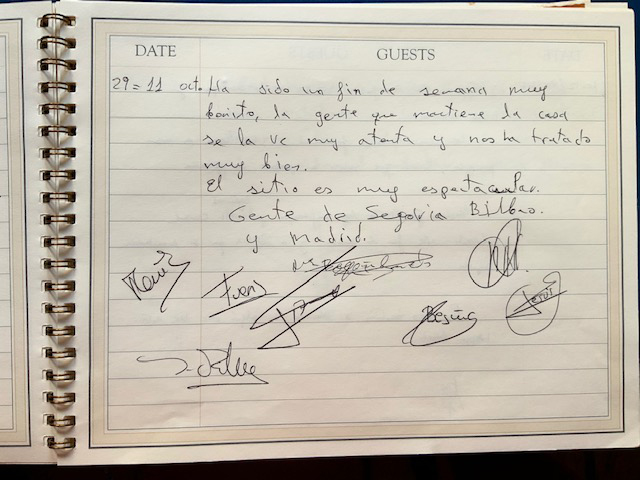 DATE GUESTS
29=11 oct. Ha sido un fin de semana muy
bonito, la gente que mantiene la casa
se la ve muy atenta y nos ha tratado
muy bien.
El sitio es muy espectacular.
Gente de Segovia Bilbao.
y Madrid.
Begoña